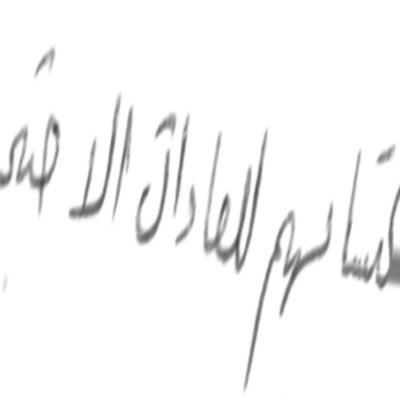 كتسابهم للعادات الاجتم